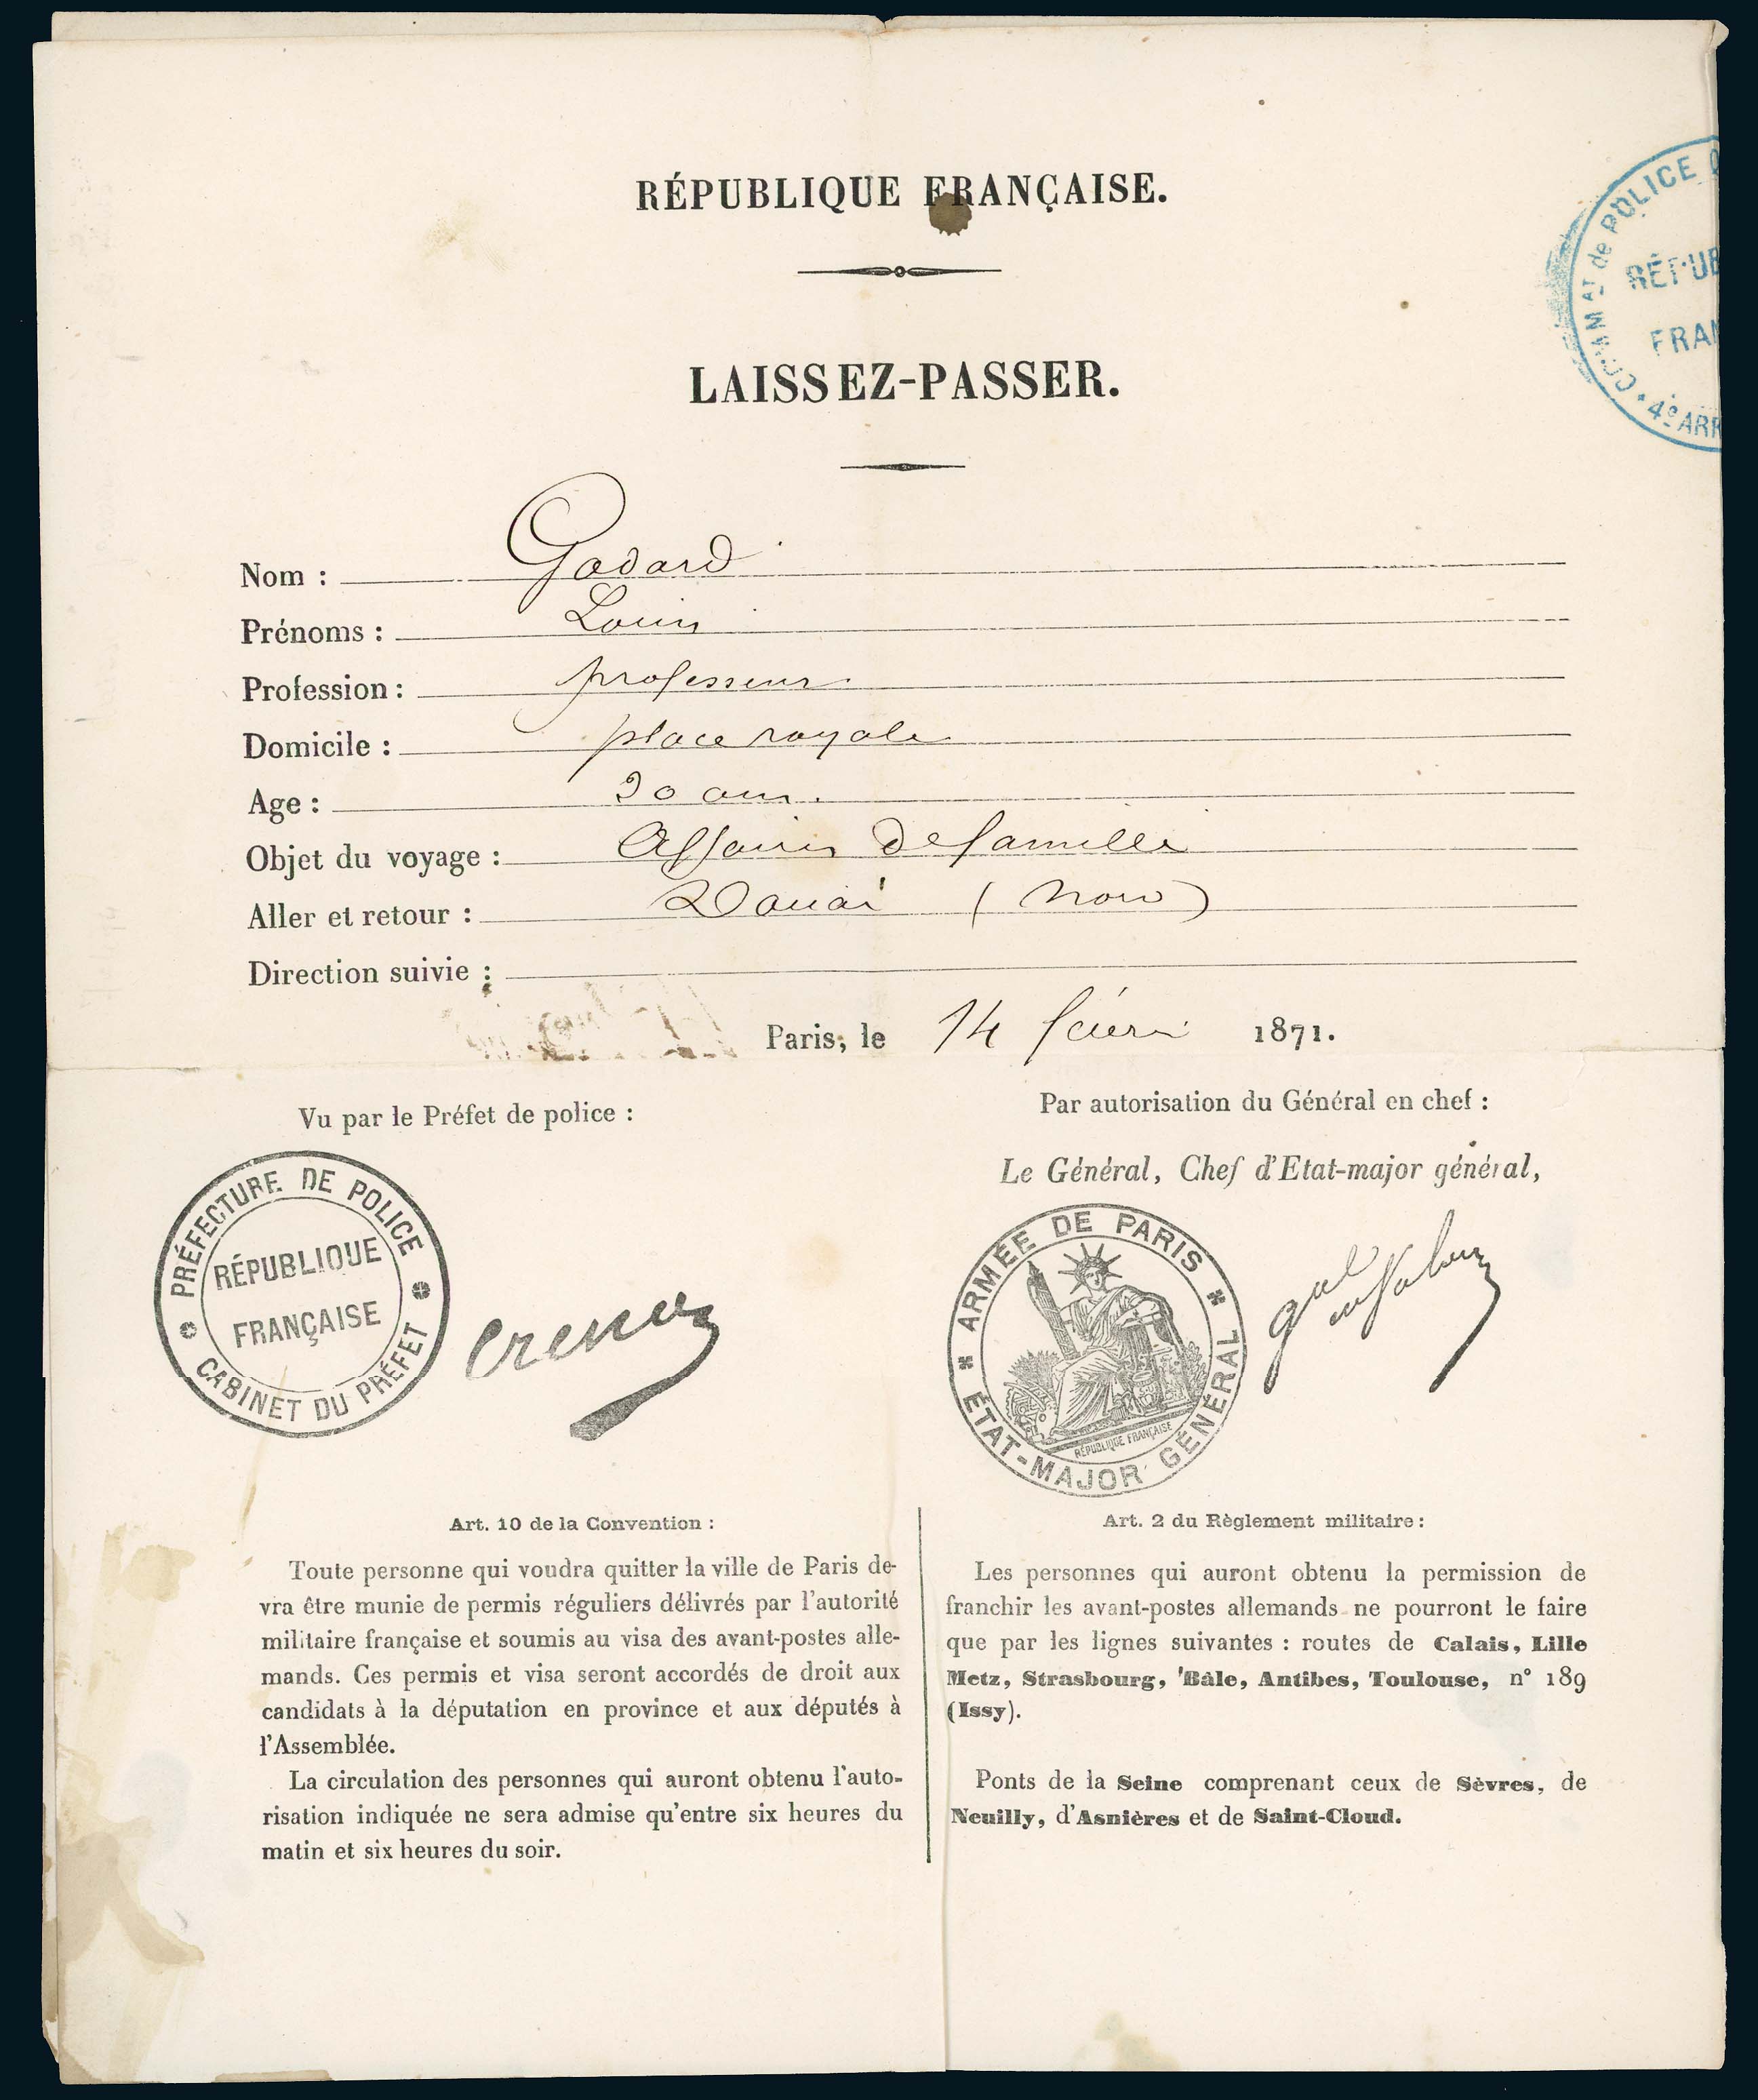 RÉPUBLIQUE FRANÇAISE.
COMM AT de POLICE
RÉPUB
FRAN
4e ARR
LAISSEZ-PASSER.
Nom : Godard
Prénoms : Louis
Profession : professeur.
Domicile : place royale
Age : 30 ans.
Objet du voyage : Affaires de famille
Aller et retour : Douai (Nord)
Direction suivie :
Paris, le 14 février 1871.
Vu par le Préfet de police :
Par autorisation du Général en chef :
Le Général, Chef d'Etat-major général,
PRÉFECTURE DE POLICE
RÉPUBLIQUE
FRANÇAISE
CABINET DU PRÉFET
ARMÉE DE PARIS
RÉPUBLIQUE FRANÇAISE
ÉTAT-MAJOR GÉNÉRAL
Art. 10 de la Convention :
Toute personne qui voudra quitter la ville de Paris de-
vra être munie de permis réguliers délivrés par l'autorité
militaire française et soumis au visa des avant-postes alle-
mands. Ces permis et visa seront accordés de droit aux
candidats à la députation en province et aux députés à
l'Assemblée.
La circulation des personnes qui auront obtenu l'auto-
risation indiquée ne sera admise qu'entre six heures du
matin et six heures du soir.
Art. 2 du Règlement militaire :
Les personnes qui auront obtenu la permission de
franchir les avant-postes allemands ne pourront le faire
que par les lignes suivantes : routes de Calais, Lille
Metz, Strasbourg, 'Bâle, Antibes, Toulouse, n° 189
(Issy).
Ponts de la Seine comprenant ceux de Sèvres, de
Neuilly, d'Asnières et de Saint-Cloud.